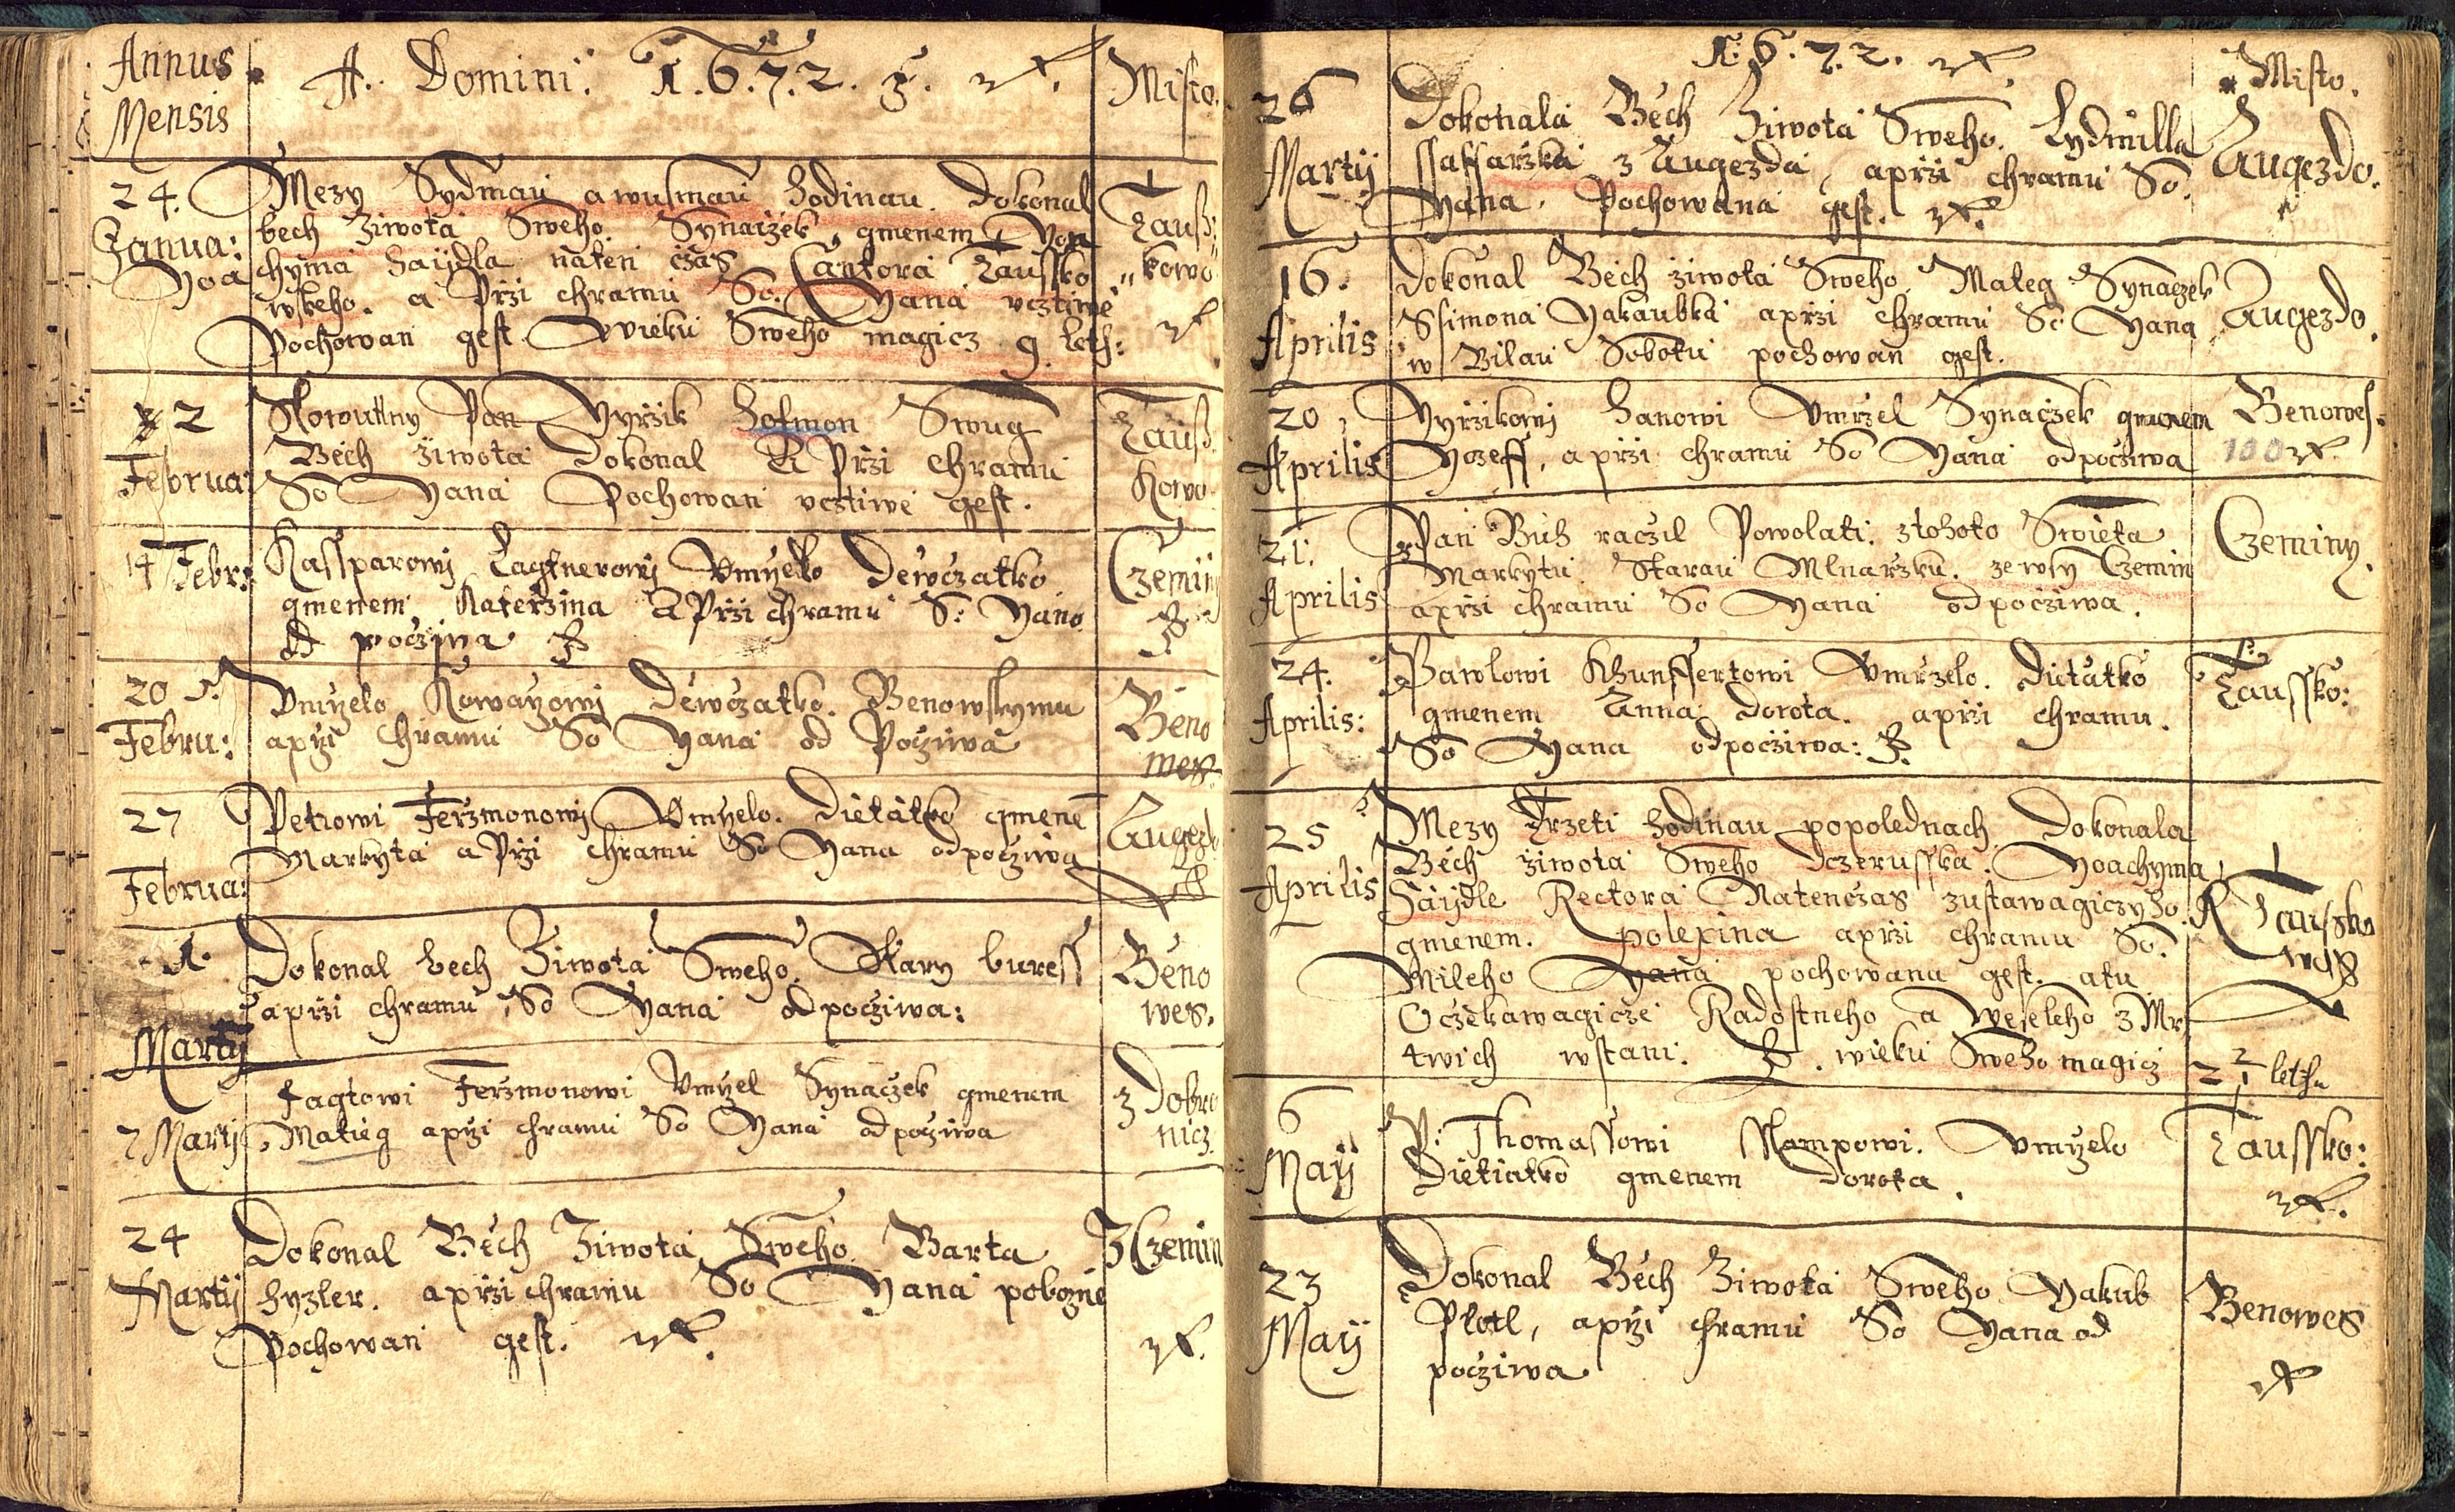 Annus
Mensis
A. Domini. 1.6.7.2.
Misto.
24.
Janua:
Mezy Sydmau a wusmau hodinau. Dokonal
bech ziwota Sweho. Synaczek, gmenem Yoa
chyma Haydla naten czas Cantora Taussko
wskeho. a Przi chramu So. Yana vcztiwe
Pochowan gest. Wieku Sweho magicz 9. leth:
Tauss:
kowo
2
Februa:
Slowutny Pan Yyrzik Hofmon Swug
Bech ziwota Dokonal A Przi chramu
So Yana Pochowan vcztiwe gest.
Tauss.
kowo
14 Febr:
Kassparowi Tagtnerowi Vmrzelo Dewczatko
gmenem Katerzina A Przi chramu S: Yana
od pocziwa
Czeminy
20
Febru:
Vmrzelo Kowarzowi Dewczatko. Benowskymu
a przi chramu So Yana od Pocziwa
Beno
wes
27
Februa:
Petrowi Ferzmonowi Vmrzelo. Dietatko gmene
Markyta a Przi chramu So Yana odpocziwa
Augezd
1.
Martij
Dokonal bech Ziwota Sweho. Stary buress
a przi chramu So Yana odpocziwa:
Beno
wes.
7 Martij
Fagtowi Ferzmonowi Vmrzel Synaczek gmenem
Matieg a przi chramu So Yana odpocziwa
z Dobra
nicz
24
Martij
Dokonal Bech Ziwota Sweho Barta
Hyzler. a przi chramu So Yana pobozne
Pochowan gest.
Z Czemin
1.6.7.2.
Misto.
26
Martij
Dokonala Bech Ziwota Sweho. Lydmilla
Ssaffarzka z Augezda, a przi chramu So.
Yana. Pochowana gest.
Augezdo.
16.
Aprilis
Dokonal Bech ziwota Sweho. Maleg Synaczek
Ssimona Yakaubka a przi chramu So Yana
w Bilau Sobotu pochowan gest.
Augezdo.
20
Aprilis
Yyrzikowi Hanowi Vmrzel Synaczek gmenem
Yozeff, a przi chramu So Yana odpocziwa
Benowes.
100
21.
Aprilis
Pan Buh raczil Powolati. ztohoto Swieta
Markytu Starau Mlnarzku. ze wsy Czemin
a przi chramu So Yana odpocziwa.
Czeminy.
24.
Aprilis:
Pawlowi Khunssertowi Vmrzelo. Dietatko
gmenem Anna Dorota. a przi chramu.
So Yana odpocziwa:
Taussko:
25
Aprilis
Mezy Trzeti hodinau popolednach Dokonala
Bech ziwota Sweho Dczerusska. Yoachyma
Haydle Rectora Natenczas zustawagiczyho.
gmenem. Polexina a przi chramu So.
Mileho Yana pochowana gest. a tu
Oczekawagicze Radostneho a Weseleho z Mr
twich wstani. wieku Sweho magicz
Taussko
wes
2 1/2 lethu
6
Maij
P: Thomassowi Slampowi. Vmrzelo
Dietiatko gmenem Dorota.
Taussko:
23
Maij
Dokonal Bech Ziwota Sweho Yakub
Plotl, a przi chramu So Yana od
pocziwa
Benowes